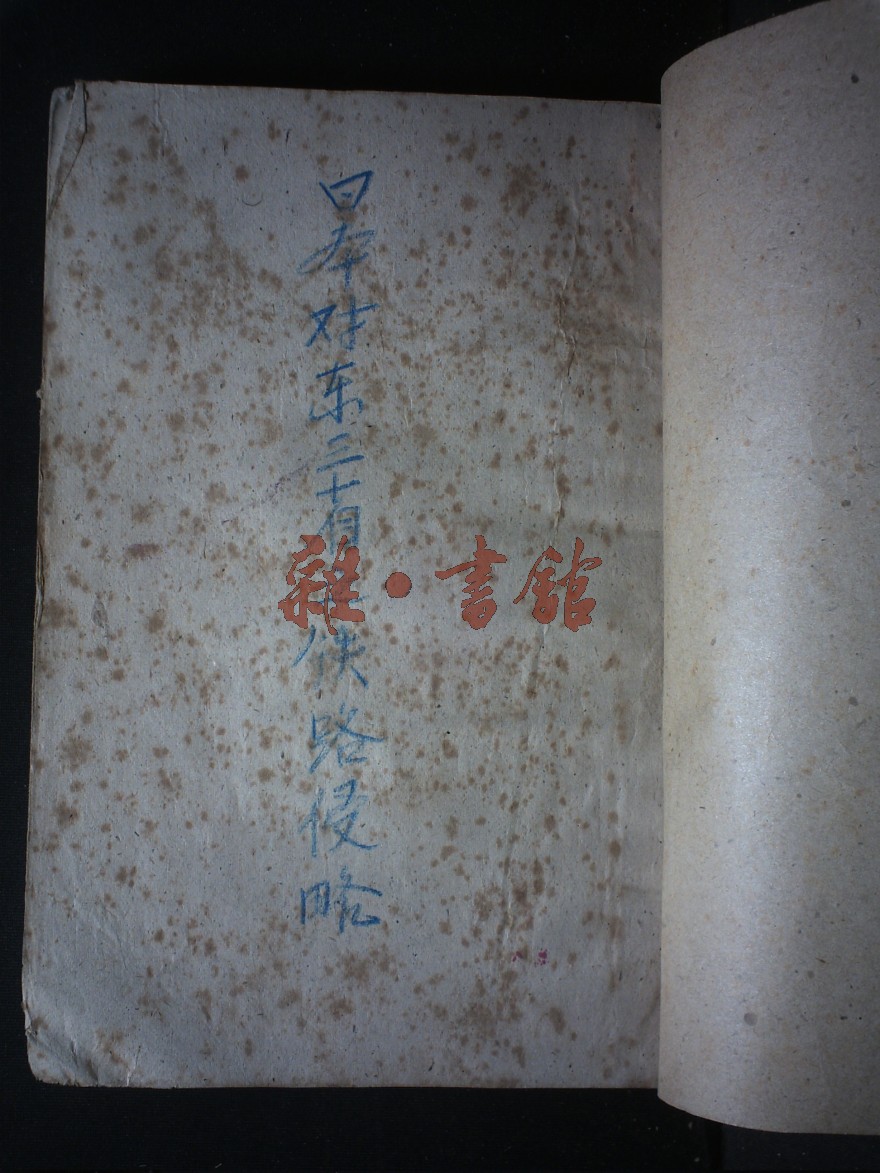 日本对东三省铁路侵略
雜·書館